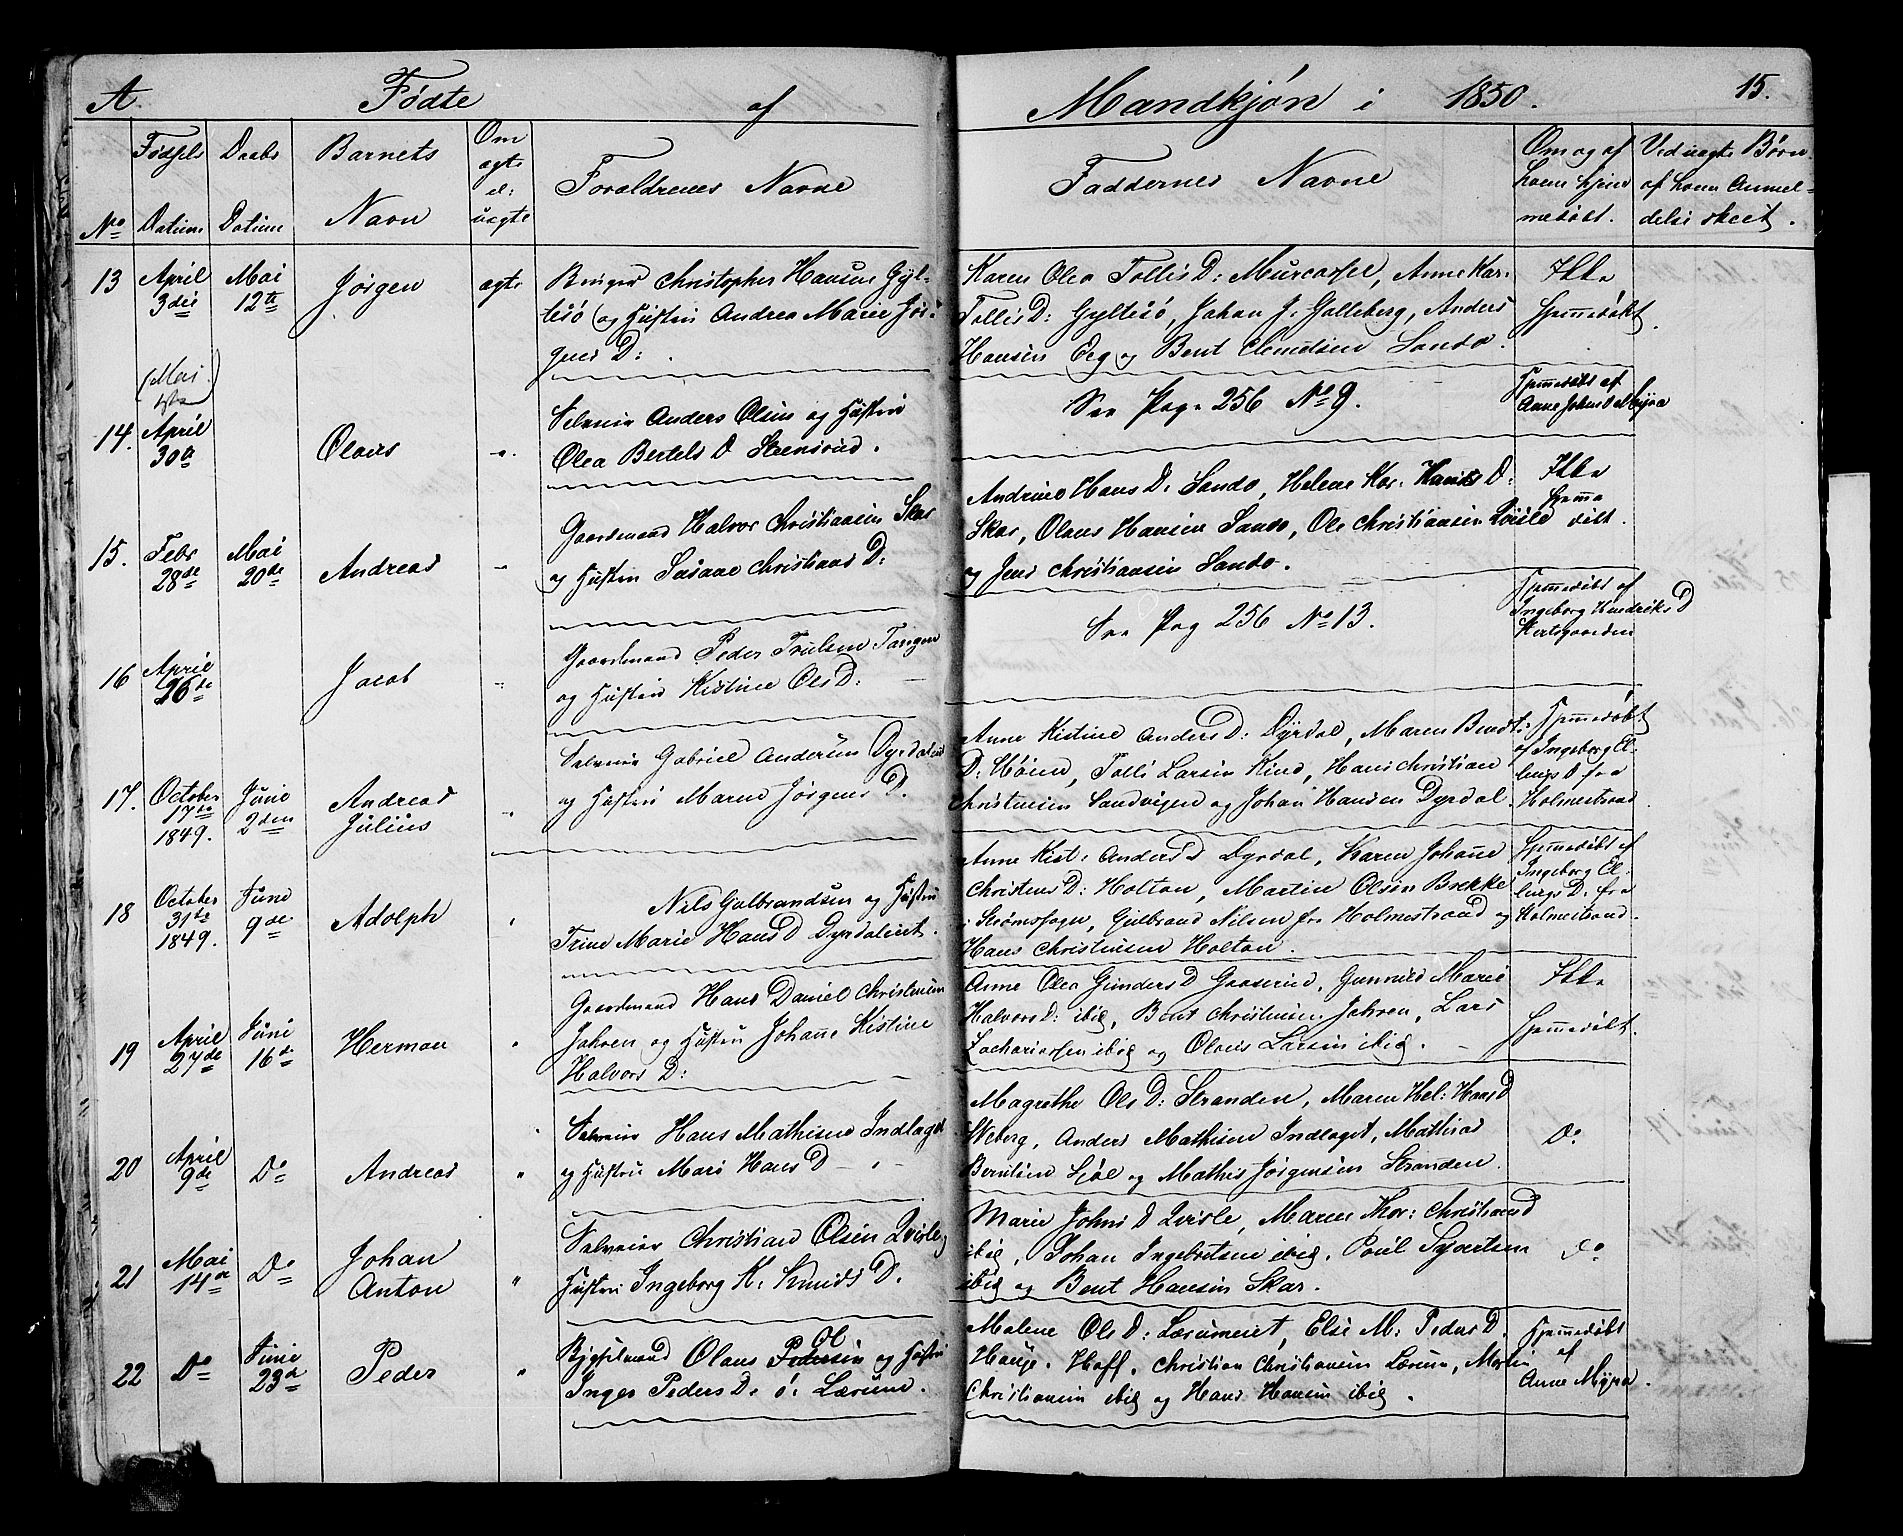 A Fødte af Mandkjøn i 1850. 15.
No Fødsels Datum Daabs Datum Barnets Navn Om ægte el: uægte Forældrenes Navne Faddernes Navne Om og af hvem hjemmedøbt. Ved uægte Børn af hvem Anmeldelse skeet.
13 April 3die Mai 12te Jørgen ægte
Christopher Hansen Gyl-
tesö og Hustru Andrea Marie Jör-
gens D:
Karen Olea Tollis D: Murcorsel, Anne Kar:
Tollis D: Gyltesö, Johan J. Golleberg, Anders
Hansen Eeg og Bent Clemetsen Sando.
Ikke
hjemmedøbt.
(Mai 1ste)
14. April 30te Olaus
Selveier Anders Olsen og Hustru
Olea Bertels D Steensrud.
See Pag. 256 No 9.
Hjemmedøbt af
Anne Johns D Myra
15. Febr 28de Mai 20de Andreas
Gaardmand Halvor Christiansen Skar
og Hustru Susane Christians D:
Andrine Hans D: Sando, Helene Kar: Hans D:
Skar, Olaus Hansen Sando, Ole Christiansen Qvisle
og Jens Christiansen Sando.
Ikke
hjemme
døbt.
16 April 26de Jacob
Gaardmand Peder Trulsen Tangen
og Hustru Kistine Ols D:
See Pag 256 No 13.
Hjemmedøbt af
Ingeborg Hendriks D
17. October 17de 1849. Juni 2den Andreas Julius
Selveier Gabriel Andersen Dyrdaleiet
og Hustru Maren Jørgens D.
Anne Kistine Anders D: Dyrdal, Maren Bendt-
D: Høien, Tolli Larsen Kind, Hans Christian
Christensen Sandvigen og Johan Hansen Dyrdal.
Hjemmedøbt
af Ingeborg El-
lings D fra
Holmestrand.
18 October 31te 1849. Juni 9de Adolph
Nils Gulbrandsen og Hustru
Trine Marie Hans D Dyrdaleiet.
Anne Kist: Anders D Dyrdal, Karen Johane
Christens D: Holton, Martin Olsen Brekke
i Strømssogn, Gulbrand Nilsen fra Holmestrand og
Hans Christensen Holton.
Hjemmedøbt af
Ingeborg El-
lings D. fra
Holmestrand.
19 April 27de Juni 16de Herman
Gaardmand Hans Daniel Christensen
Jahren og Hustru Johane Kistine
Halvors D:
Anne Olea Gunders D Gaaserud, Gunnild Marie
Halvors D: ibid, Bent Christensen Jahren, Lars
Zachariassen ibid og Olaus Larsen ibid.
Ikke
hjemmedøbt.
20 April 9de Do Andreas
Selveier Hans Mathisen Indlaget
og Hustru Mari Hans D
Magrethe Ols D: Stranden, Maren Hel: Hans D
Weberg, Anders Mathisen Indlaget, Mathias
Berntsen Sjøl og Mathis Jørgensen Stranden.
Do
21 Mai 14de Do Johan Anton
Selveier Christian Olsen Qvisle og
Hustru Ingeborg K. Knuds D.
Maria Johns D Qvisle, Maren Kar: Christians D
ibid, Johan Ingebretsen ibid, Poul Syvertsen
ibid og Bent Hansen Skar.
Do
22 Do Juni 23de Peder
Olaus Ol Pedersen og Hustru
Inger Peders D. ö. Lærum.
Malene Ols D: Lærumeiet, Else M: Peders D.
Hauge. Hoff, Christian Christiansen Lærum, Martin
Christiansen ibid og Hans Hansen ibid.
Hjemmedøbt
af
Anne Myra.